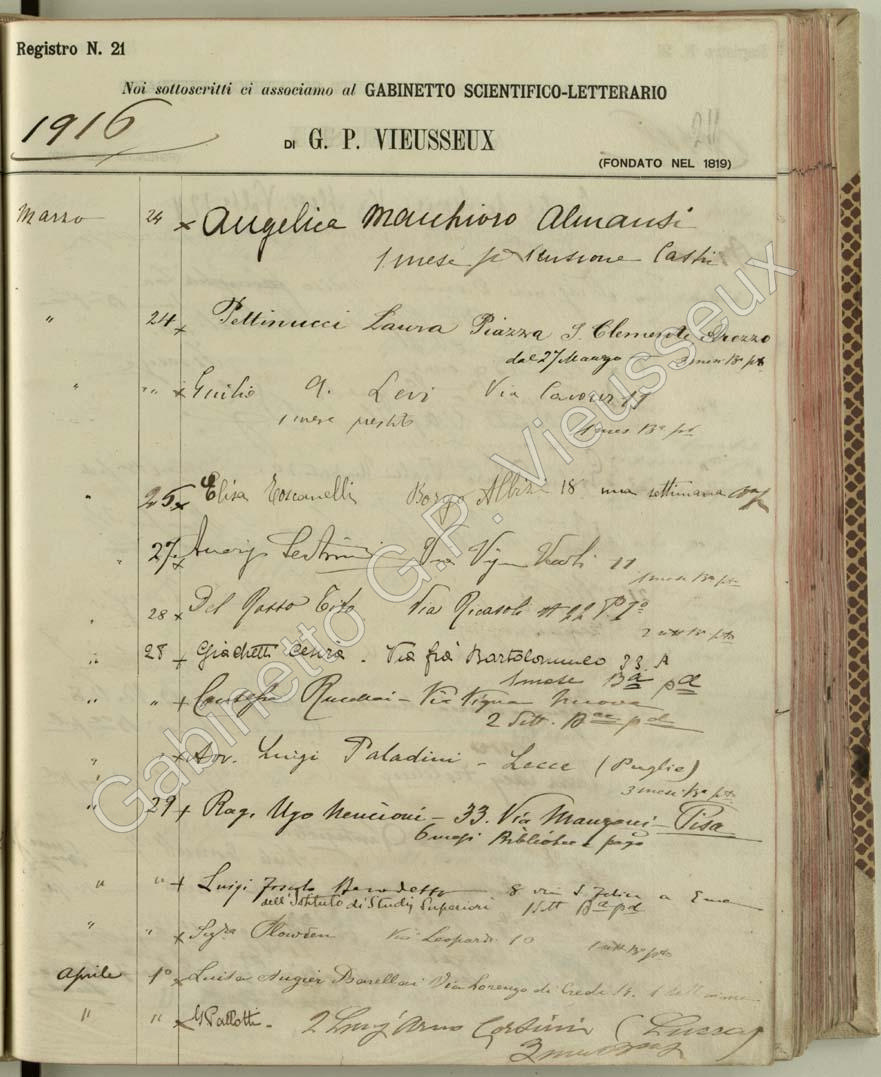 Registro N. 21
Noi sottoscritti ci associamo al GABINETTO SCIENTIFICO-LETTERARIO
1916
DI G. P. VIEUSSEUX
(FONDATO NEL 1819)
Marzo 24 x Angelica Marchioro Almansi
1 mese
" 24 x Pettinucci Laura Piazza S. Clemente Arezzo
dal 27 Marzo
" " " x Giulio A. Levi Via Cavour 11
1 mese prestito 1 mes Ba pt
" 25 x Elisa Toscanelli Borgo Albizi 18 una settimana
" 27 x Via Vigna 11
1 mese Ba pt
" 28 x Del Rosso Tito Via Ricasoli
" 28 + Giachetti Cesira . Via frà Bartolommeo 33 A
1 mese Ba pd
" " + Contessa Rucellai – Via Vigna Nuova
2 Sett. Baa pd
" " x Avv. Luigi Paladini – Lecce (Puglie)
3 mesi Ba pt
" 29 + Rag. Ugo Nencioni – 33. Via Manzoni – Pisa
6 mesi Biblioteca
" " + Luigi Foscolo Benedetto 8 S. Felice a Ema
dell'Istituto di Studi Superiori 1 Sett Ba pd
" " x Plowden Via Leopardi 10
Aprile 1° x Luisa Augier Barellai Via Lorenzo di Credi
" " x G Pallotti. 2 Lung'Arno Corsini
Gabinetto G.P. Vieusseux